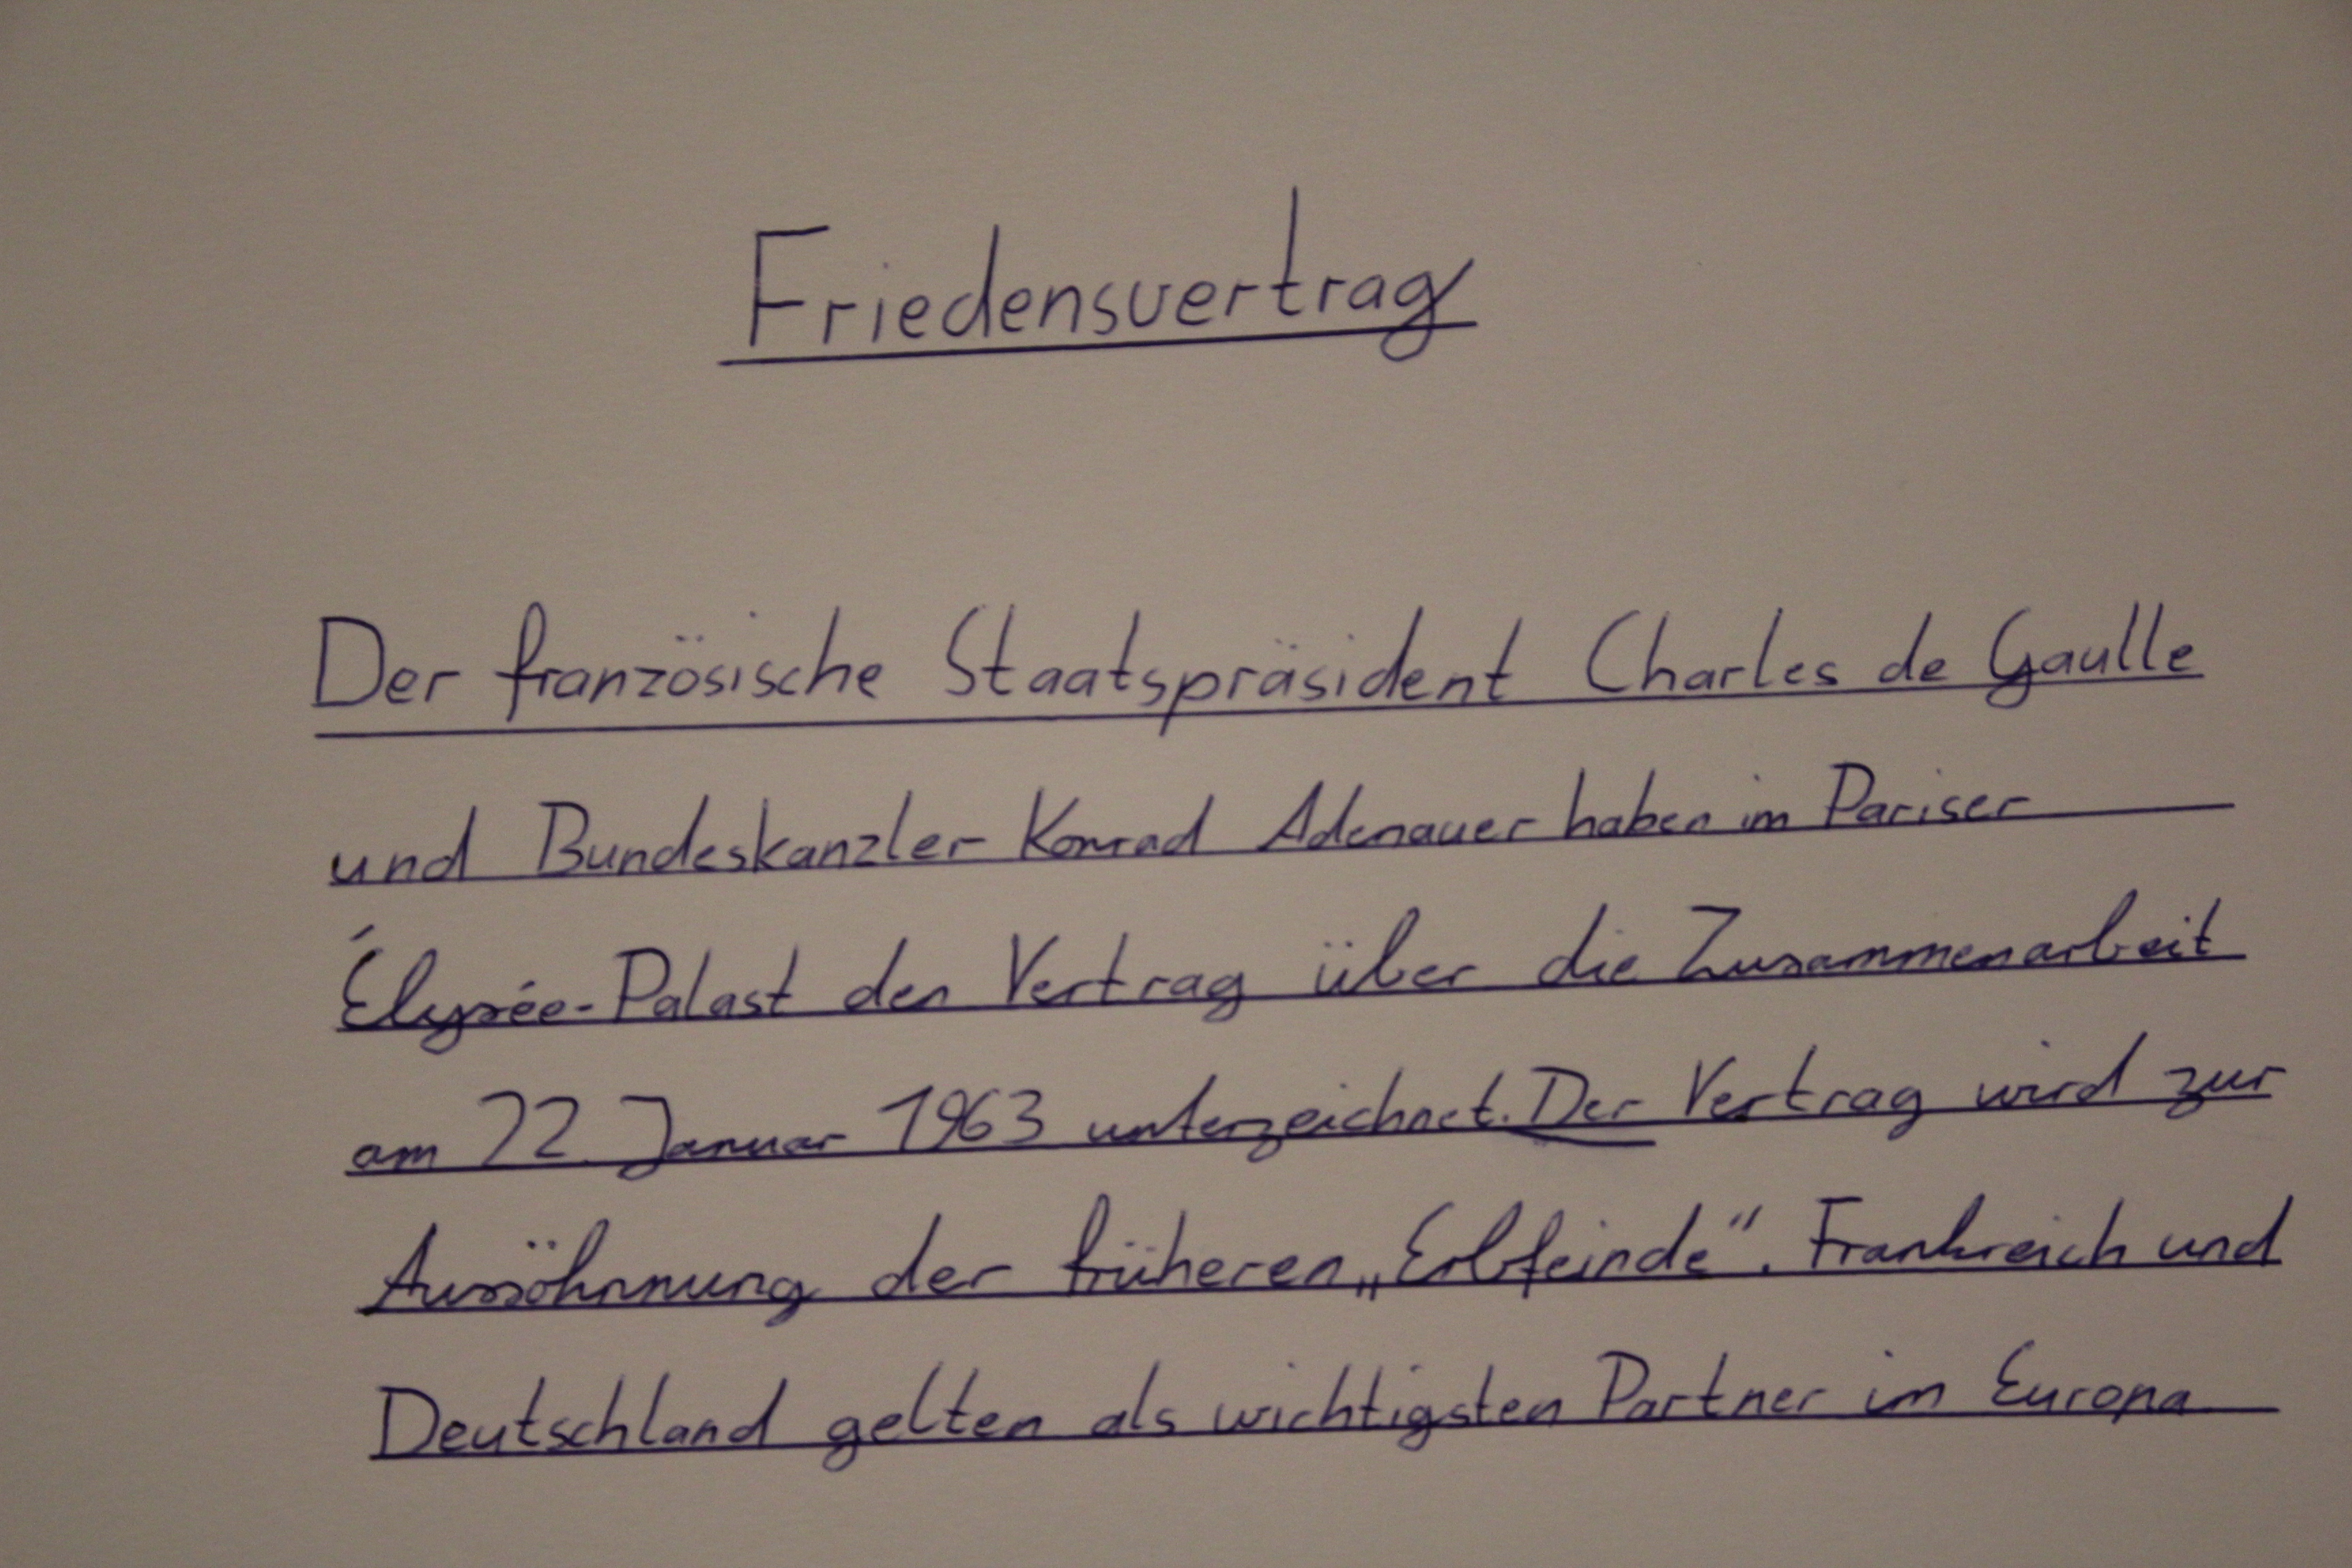 Friedensvertrag
Der französische Staatspräsident Charles de Gaulle
und Bundeskanzler Konrad Adenauer haben im Pariser
Élysée-Palast den Vertrag über die Zusammenarbeit
am 22. Januar 1963 unterzeichnet. Der Vertrag wird zur
Aussöhnnung der früheren „Erbfeinde“. Frankreich und
Deutschland gelten als wichtigsten Partner im Europa